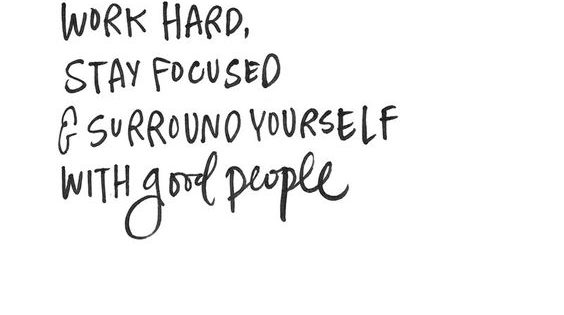 WORK HARD,
STAY FOCUSED
& SURROUND YOURSELF
WITH good people